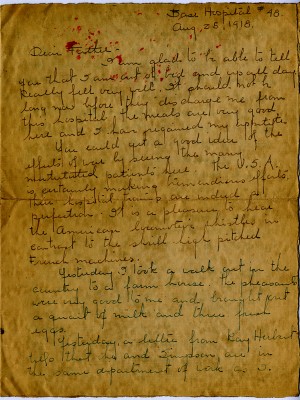 Base Hospital #48.
Aug. 25, 1918.
Dear Father:-
I am glad to be able to tell
you that I am out of bed and up all day
Really feel very well. It should not be
long now before they discharge me from
this hospital. The meals are very good
here and I have regained my appetite.
You could get a good idea of the
effects of war by seeing the many
patients here. The U.S.A.
is certainly making tremendous efforts,
their hospital trains are models of
perfection. It is a pleasure to hear
the American locomotive whistles in
contrast to the shrill high pitched
French machines.
Yesterday I took a walk out in the
country to a farm house. The pleasants
were very good to me and brought out
a quart of milk and three fresh
eggs.
Yesterday, a letter from Ray Herbert
that he and are in
the same department of work as I.